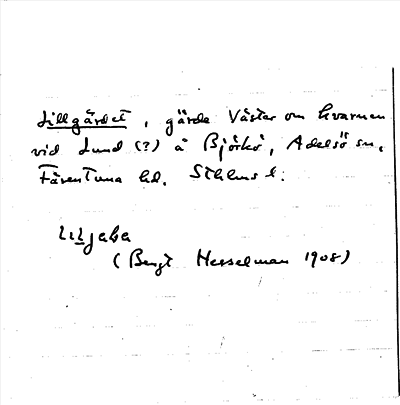 Lillgärdet, gärde Väster om kvarnen
vid Lund (?) å Björkö, Adelsö sn,
Färentuna hd. Sthlms l:
(Bengt Hesselman 1908)